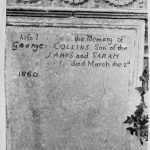 Also to the Memory of
George COLLINS Son of the
JAMES and SARAH
died March the 2d
1860